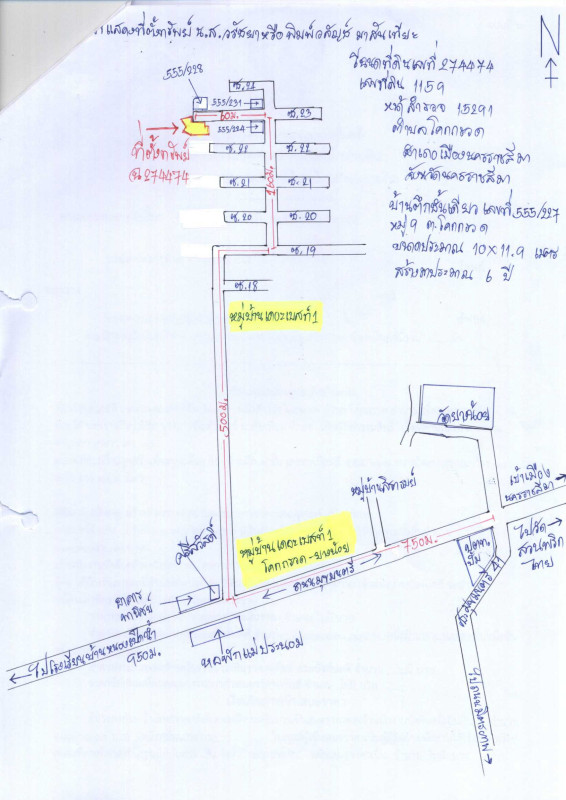 แสดงที่ตั้งทรัพย์ น.ส.วรัชยาหรือพิมพ์วลัญช์ มาสันเทียะ
N
โฉนดที่ดินเลขที่ 274474
เลขที่ดิน 1159
หน้าสำรวจ 15291
ตำบลโคกกรวด
อำเภอเมืองนครราชสีมา
จังหวัดนครราชสีมา
บ้านตึกชั้นเดียว เลขที่ 555/227
หมู่ 9 ต.โคกกรวด
ขนาดประมาณ 10×11.9 เมตร
สร้างมาประมาณ 6 ปี
555/228
ซ.24
555/231
60ม.
ซ.23
555/224
ที่ตั้งทรัพย์
ฉ.274474
ซ.22
ซ.22
160ม.
ซ.21
ซ.21
ซ.20
ซ.20
ซ.19
ซ.18
หมู่บ้านเดอะเบสท์1
500ม.
หมู่บ้านเดอะเบสท์1
โคกกรวด-ยางน้อย
หมู่บ้านสีวารมย์
วัดยางน้อย
เข้าเมือง
นครราชสีมา
ไปวัด
750ม.
ถ.มุขมนตรี
อาคาร
พาณิชย์
หอพักแม่ประนอม
ไปโรงเรียนบ้านหนองเป็ดน้ำ
950ม.
ไปถนนมิตรภาพ